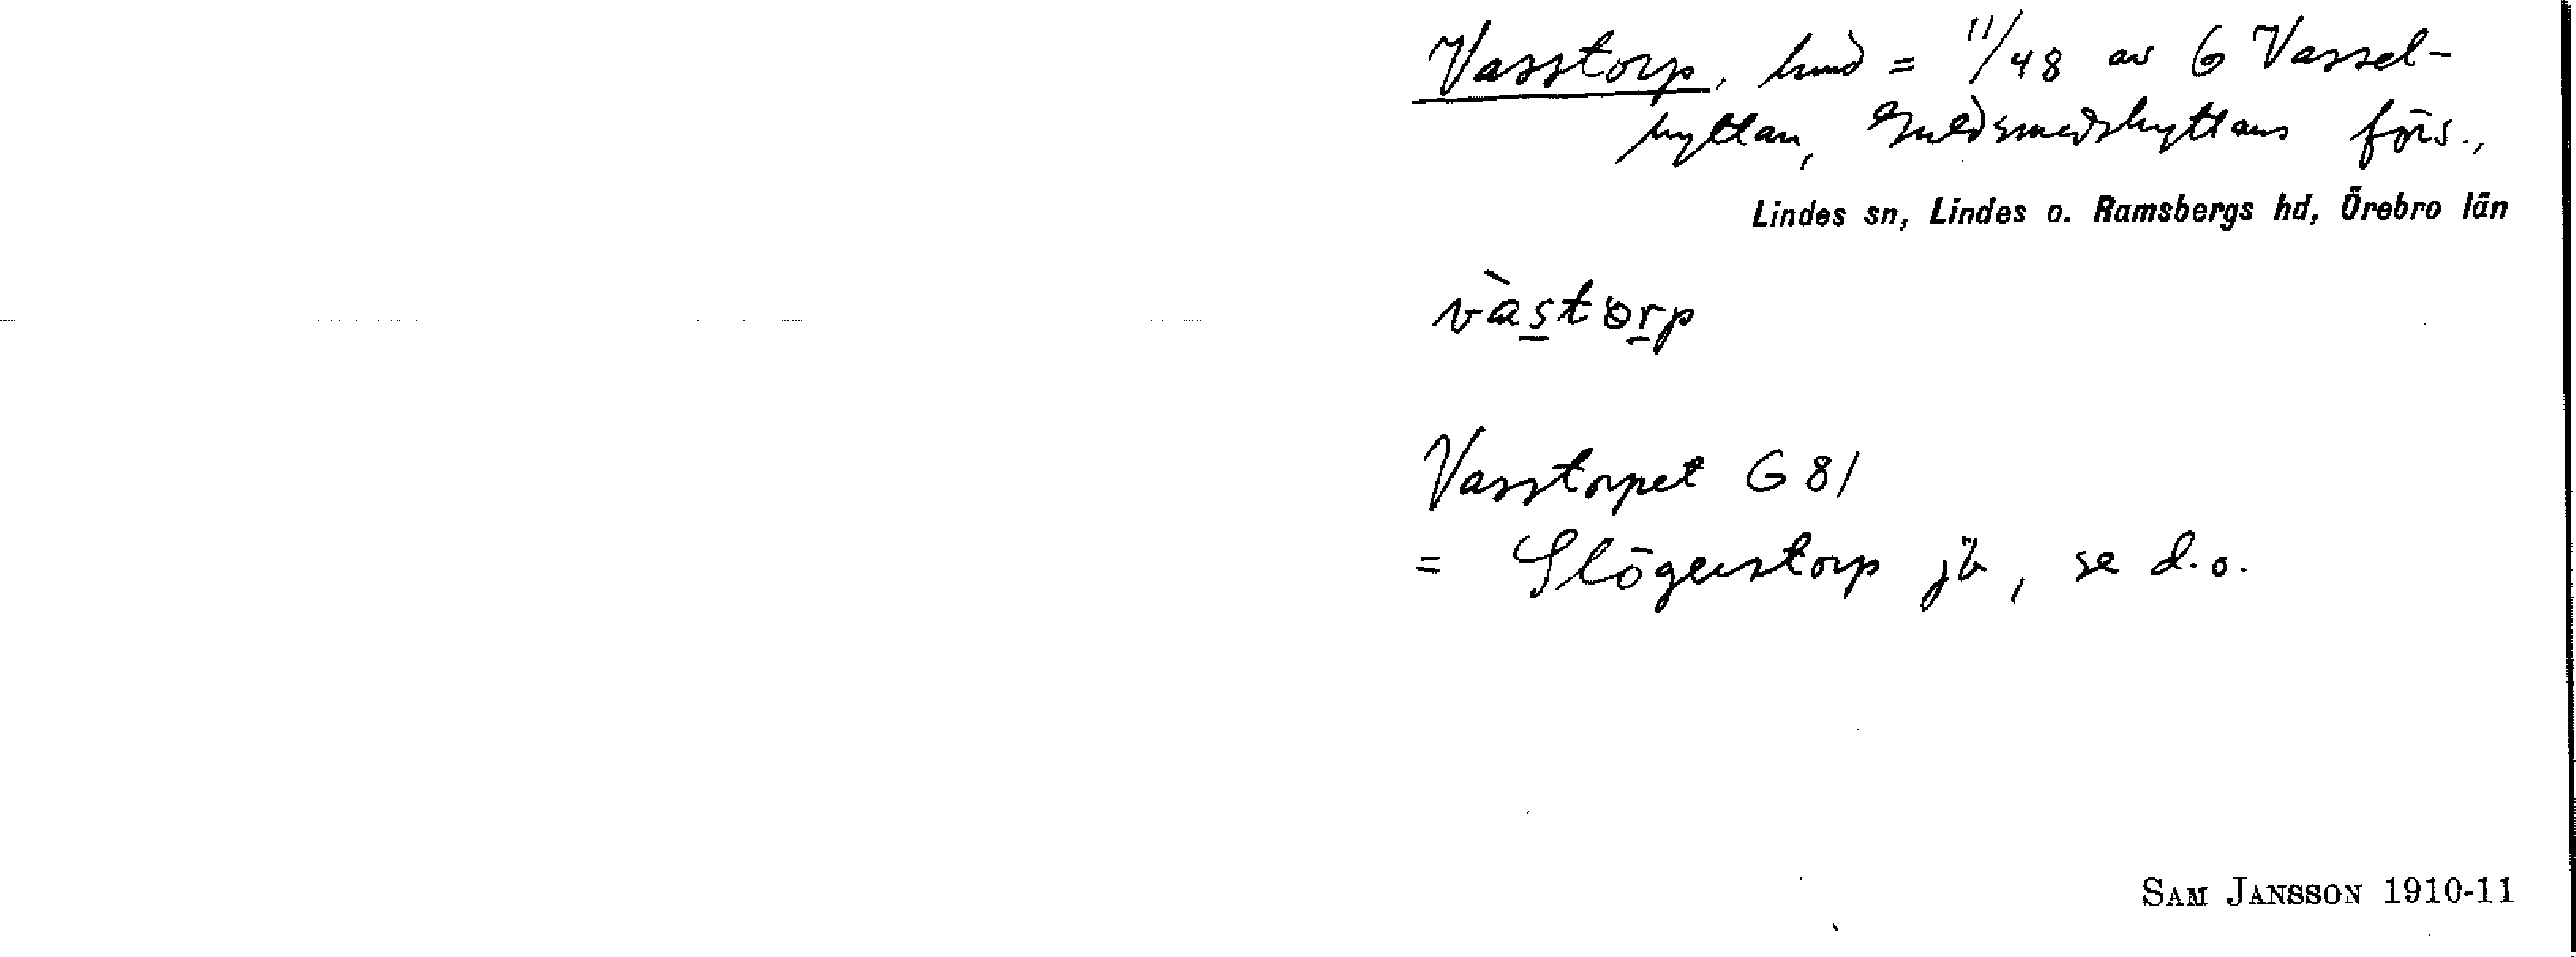 Vasstorp, hmd = 11/48 av 6 Vassel-
hyttan, Guldsmedshyttans förs.,
Lindes sn, Lindes o. Ramsbergs hd, Örebro län
vàstorp
Vasstorpet G 81
= Slögerstorp jb, se d.o.
SAM JANSSON 1910-11